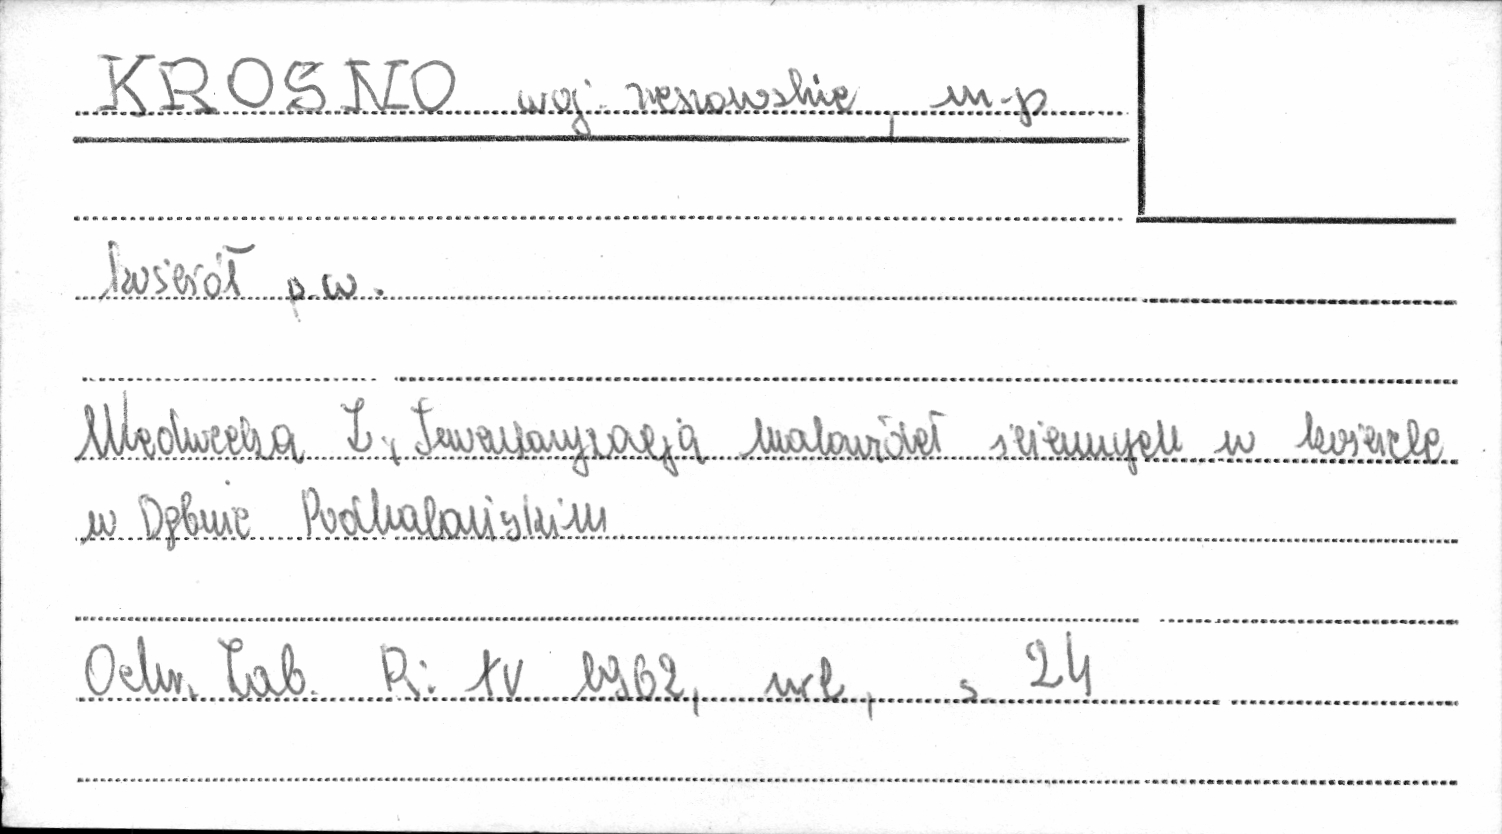 KROSNO woj. rzeszowskie, m-p
kościół p.w.
Medwecka Z., Inwentaryzacja malowideł ściennych w kościele
w Dębnie Podhalańskim
Ochr. Zab. R: XV 1962, nr 1, s. 24